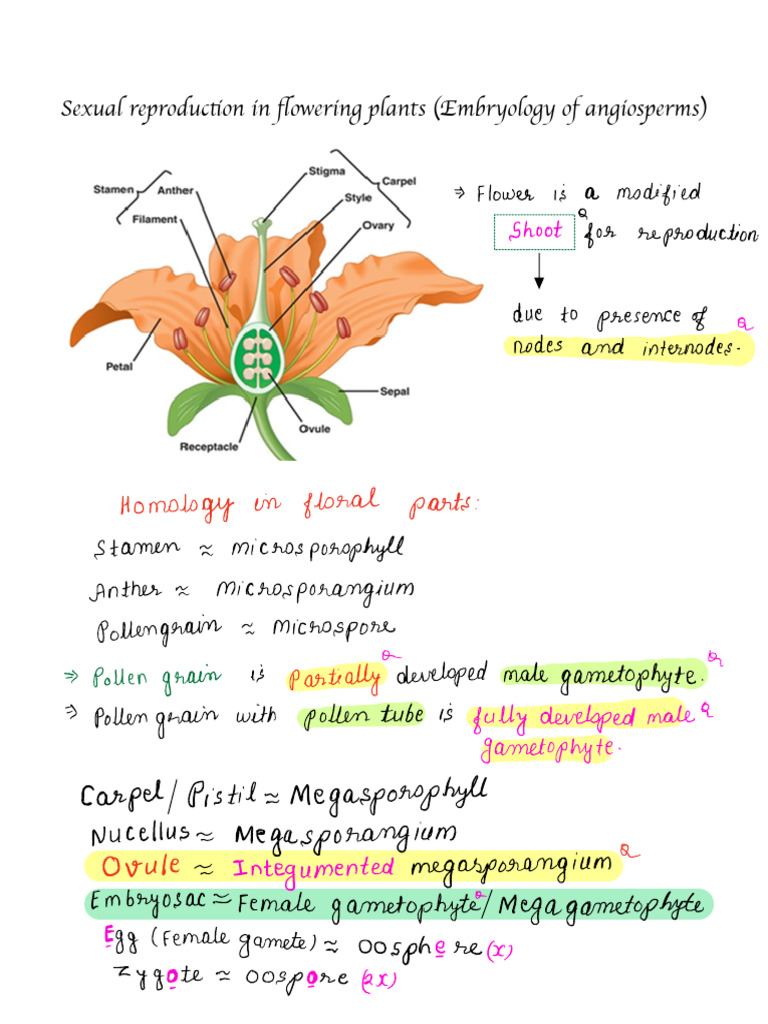 Sexual reproduction in flowering plants (Embryology of angiosperms)
Stigma
Carpel
Stamen
Anther
Style
Filament
Ovary
Petal
Sepal
Ovule
Receptacle
⇒ Flower is a modified
Shoot Q for reproduction
due to presence of Q
nodes and internodes.
Homology in floral parts:
Stamen ≈ microsporophyll
Anther ≈ Microsporangium
Pollengrain ≈ Microspore
⇒ Pollen grain is Partially Q developed male gametophyte. Q
⇒ Pollen grain with pollen tube is fully developed male Q
gametophyte.
Carpel / Pistil ≈ Megasporophyll
Nucellus ≈ Megasporangium
Ovule ≈ Integumented megasporangium Q
Embryosac ≈ Female gametophyte Q / Mega gametophyte
Egg (Female gamete) ≈ oosphere (x)
Zygote ≈ oospore (2x)